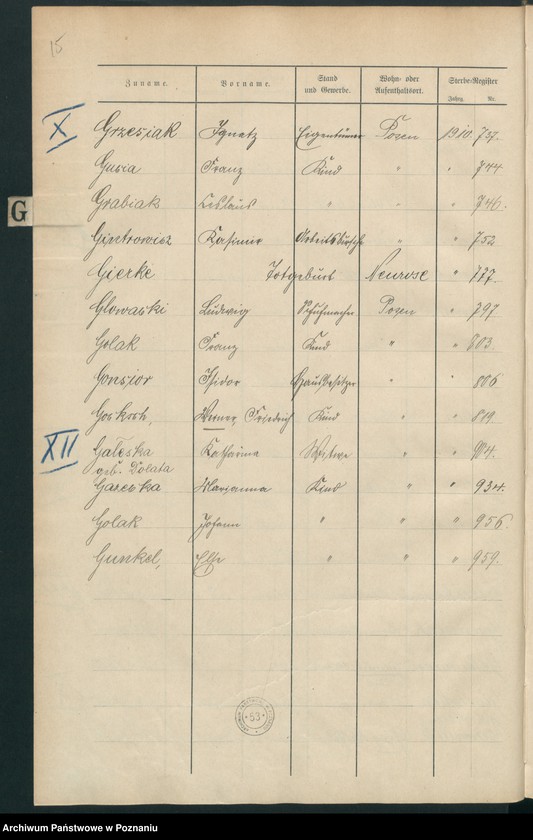 15
Zuname. Vorname. Stand und Gewerbe. Wohn- oder Aufenthaltsort. Sterbe-Register Jahrg. Nr.
X Grzesiak Ignatz Eigentümer Posen 1910. 737.
Gusia Franz Kind " " 744
Grabiak Ceslaus " " " 746.
Gintrowicz Kasimir Arbeitsbursche " " 752
G
Gierke Totgeburt Neurose " 727.
Glowacki Ludwig Schuhmacher Posen " 797
Golak Franz Kind " " 803.
Gonsior Isidor Hausbesitzer " " 806
Werner, Friedrich Kind " " 819.
XII Galeska Katharina Witwe " " 904.
geb. Dolata
Gareska Marianna Kind " " 934.
Golak Johann " " " 956.
Gunkel, Else " " " 959.
53
Archiwum Państwowe w Poznaniu